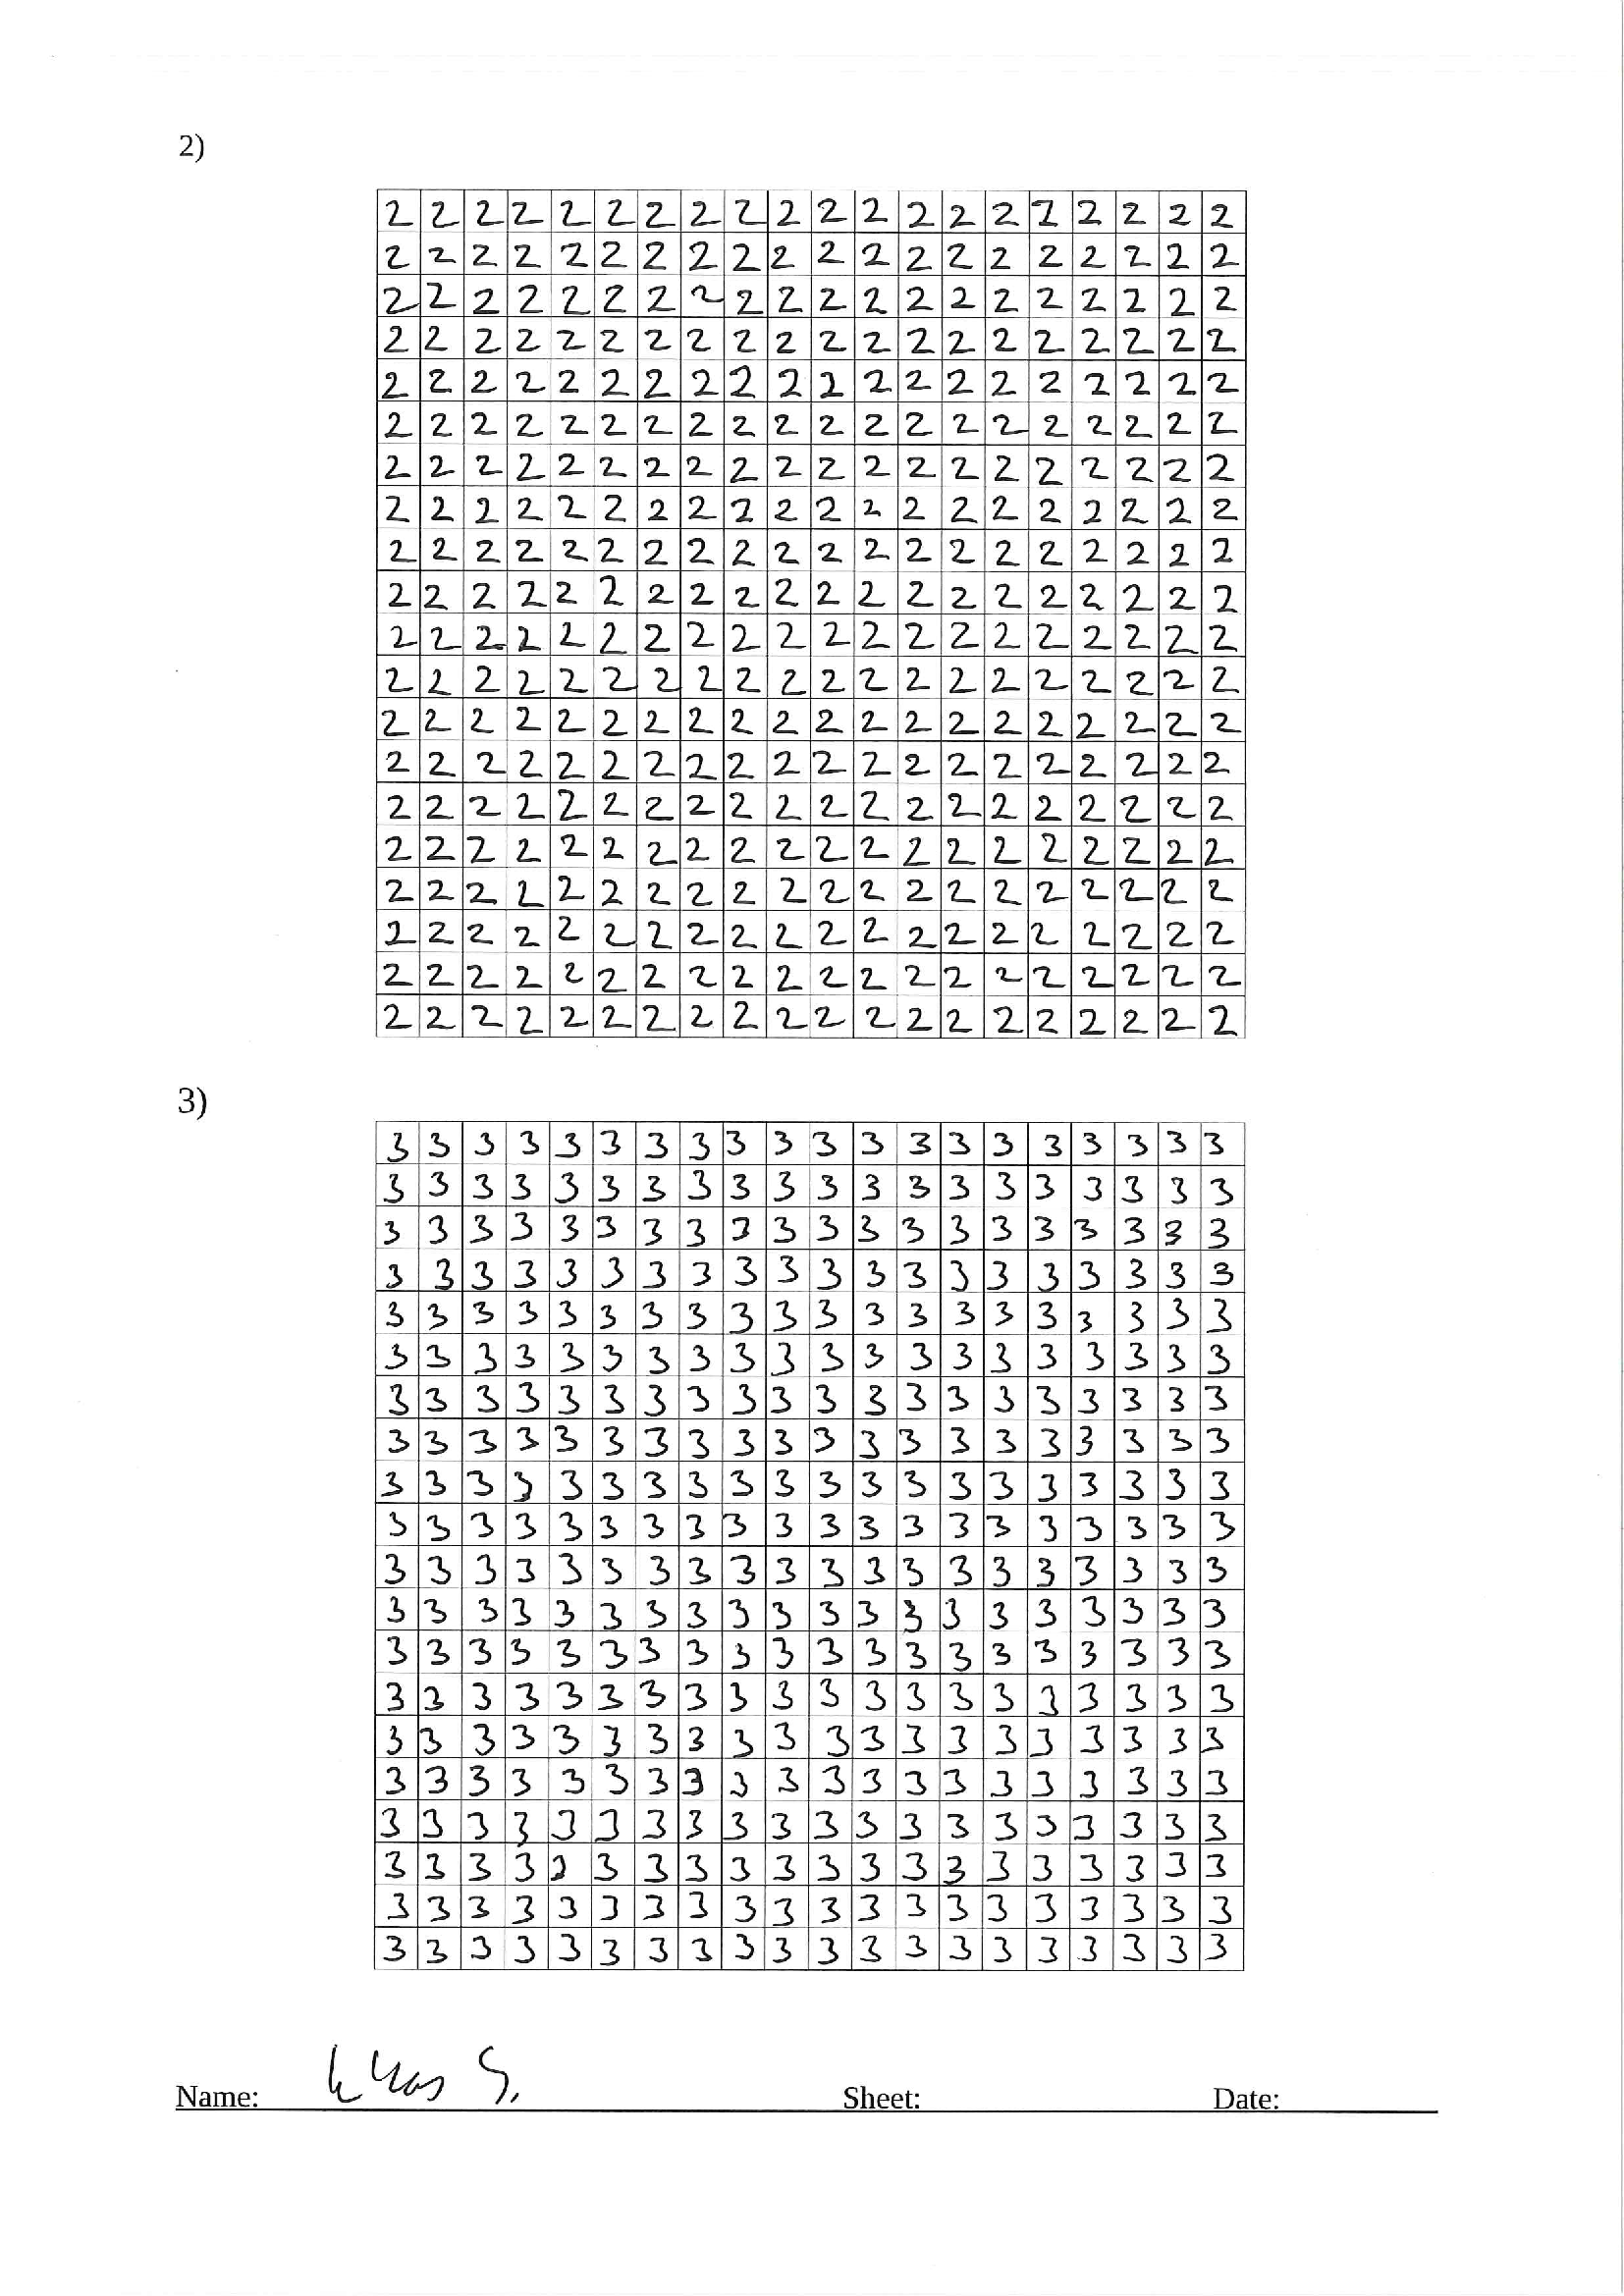 2)
2 2 2 2 2 2 2 2 2 2 2 2 2 2 2 2 2 2 2 2
2 2 2 2 2 2 2 2 2 2 2 2 2 2 2 2 2 2 2 2
2 2 2 2 2 2 2 2 2 2 2 2 2 2 2 2 2 2 2 2
2 2 2 2 2 2 2 2 2 2 2 2 2 2 2 2 2 2 2 2
2 2 2 2 2 2 2 2 2 2 2 2 2 2 2 2 2 2 2 2
2 2 2 2 2 2 2 2 2 2 2 2 2 2 2 2 2 2 2 2
2 2 2 2 2 2 2 2 2 2 2 2 2 2 2 2 2 2 2 2
2 2 2 2 2 2 2 2 2 2 2 2 2 2 2 2 2 2 2 2
2 2 2 2 2 2 2 2 2 2 2 2 2 2 2 2 2 2 2 2
2 2 2 2 2 2 2 2 2 2 2 2 2 2 2 2 2 2 2 2
2 2 2 2 2 2 2 2 2 2 2 2 2 2 2 2 2 2 2 2
2 2 2 2 2 2 2 2 2 2 2 2 2 2 2 2 2 2 2 2
2 2 2 2 2 2 2 2 2 2 2 2 2 2 2 2 2 2 2 2
2 2 2 2 2 2 2 2 2 2 2 2 2 2 2 2 2 2 2 2
2 2 2 2 2 2 2 2 2 2 2 2 2 2 2 2 2 2 2 2
2 2 2 2 2 2 2 2 2 2 2 2 2 2 2 2 2 2 2 2
2 2 2 2 2 2 2 2 2 2 2 2 2 2 2 2 2 2 2 2
2 2 2 2 2 2 2 2 2 2 2 2 2 2 2 2 2 2 2 2
2 2 2 2 2 2 2 2 2 2 2 2 2 2 2 2 2 2 2 2
2 2 2 2 2 2 2 2 2 2 2 2 2 2 2 2 2 2 2 2
3)
3 3 3 3 3 3 3 3 3 3 3 3 3 3 3 3 3 3 3 3
3 3 3 3 3 3 3 3 3 3 3 3 3 3 3 3 3 3 3 3
3 3 3 3 3 3 3 3 3 3 3 3 3 3 3 3 3 3 3 3
3 3 3 3 3 3 3 3 3 3 3 3 3 3 3 3 3 3 3 3
3 3 3 3 3 3 3 3 3 3 3 3 3 3 3 3 3 3 3 3
3 3 3 3 3 3 3 3 3 3 3 3 3 3 3 3 3 3 3 3
3 3 3 3 3 3 3 3 3 3 3 3 3 3 3 3 3 3 3 3
3 3 3 3 3 3 3 3 3 3 3 3 3 3 3 3 3 3 3 3
3 3 3 3 3 3 3 3 3 3 3 3 3 3 3 3 3 3 3 3
3 3 3 3 3 3 3 3 3 3 3 3 3 3 3 3 3 3 3 3
3 3 3 3 3 3 3 3 3 3 3 3 3 3 3 3 3 3 3 3
3 3 3 3 3 3 3 3 3 3 3 3 3 3 3 3 3 3 3 3
3 3 3 3 3 3 3 3 3 3 3 3 3 3 3 3 3 3 3 3
3 3 3 3 3 3 3 3 3 3 3 3 3 3 3 3 3 3 3 3
3 3 3 3 3 3 3 3 3 3 3 3 3 3 3 3 3 3 3 3
3 3 3 3 3 3 3 3 3 3 3 3 3 3 3 3 3 3 3 3
3 3 3 3 3 3 3 3 3 3 3 3 3 3 3 3 3 3 3 3
3 3 3 3 3 3 3 3 3 3 3 3 3 3 3 3 3 3 3 3
3 3 3 3 3 3 3 3 3 3 3 3 3 3 3 3 3 3 3 3
3 3 3 3 3 3 3 3 3 3 3 3 3 3 3 3 3 3 3 3
Name: S. Sheet: Date: